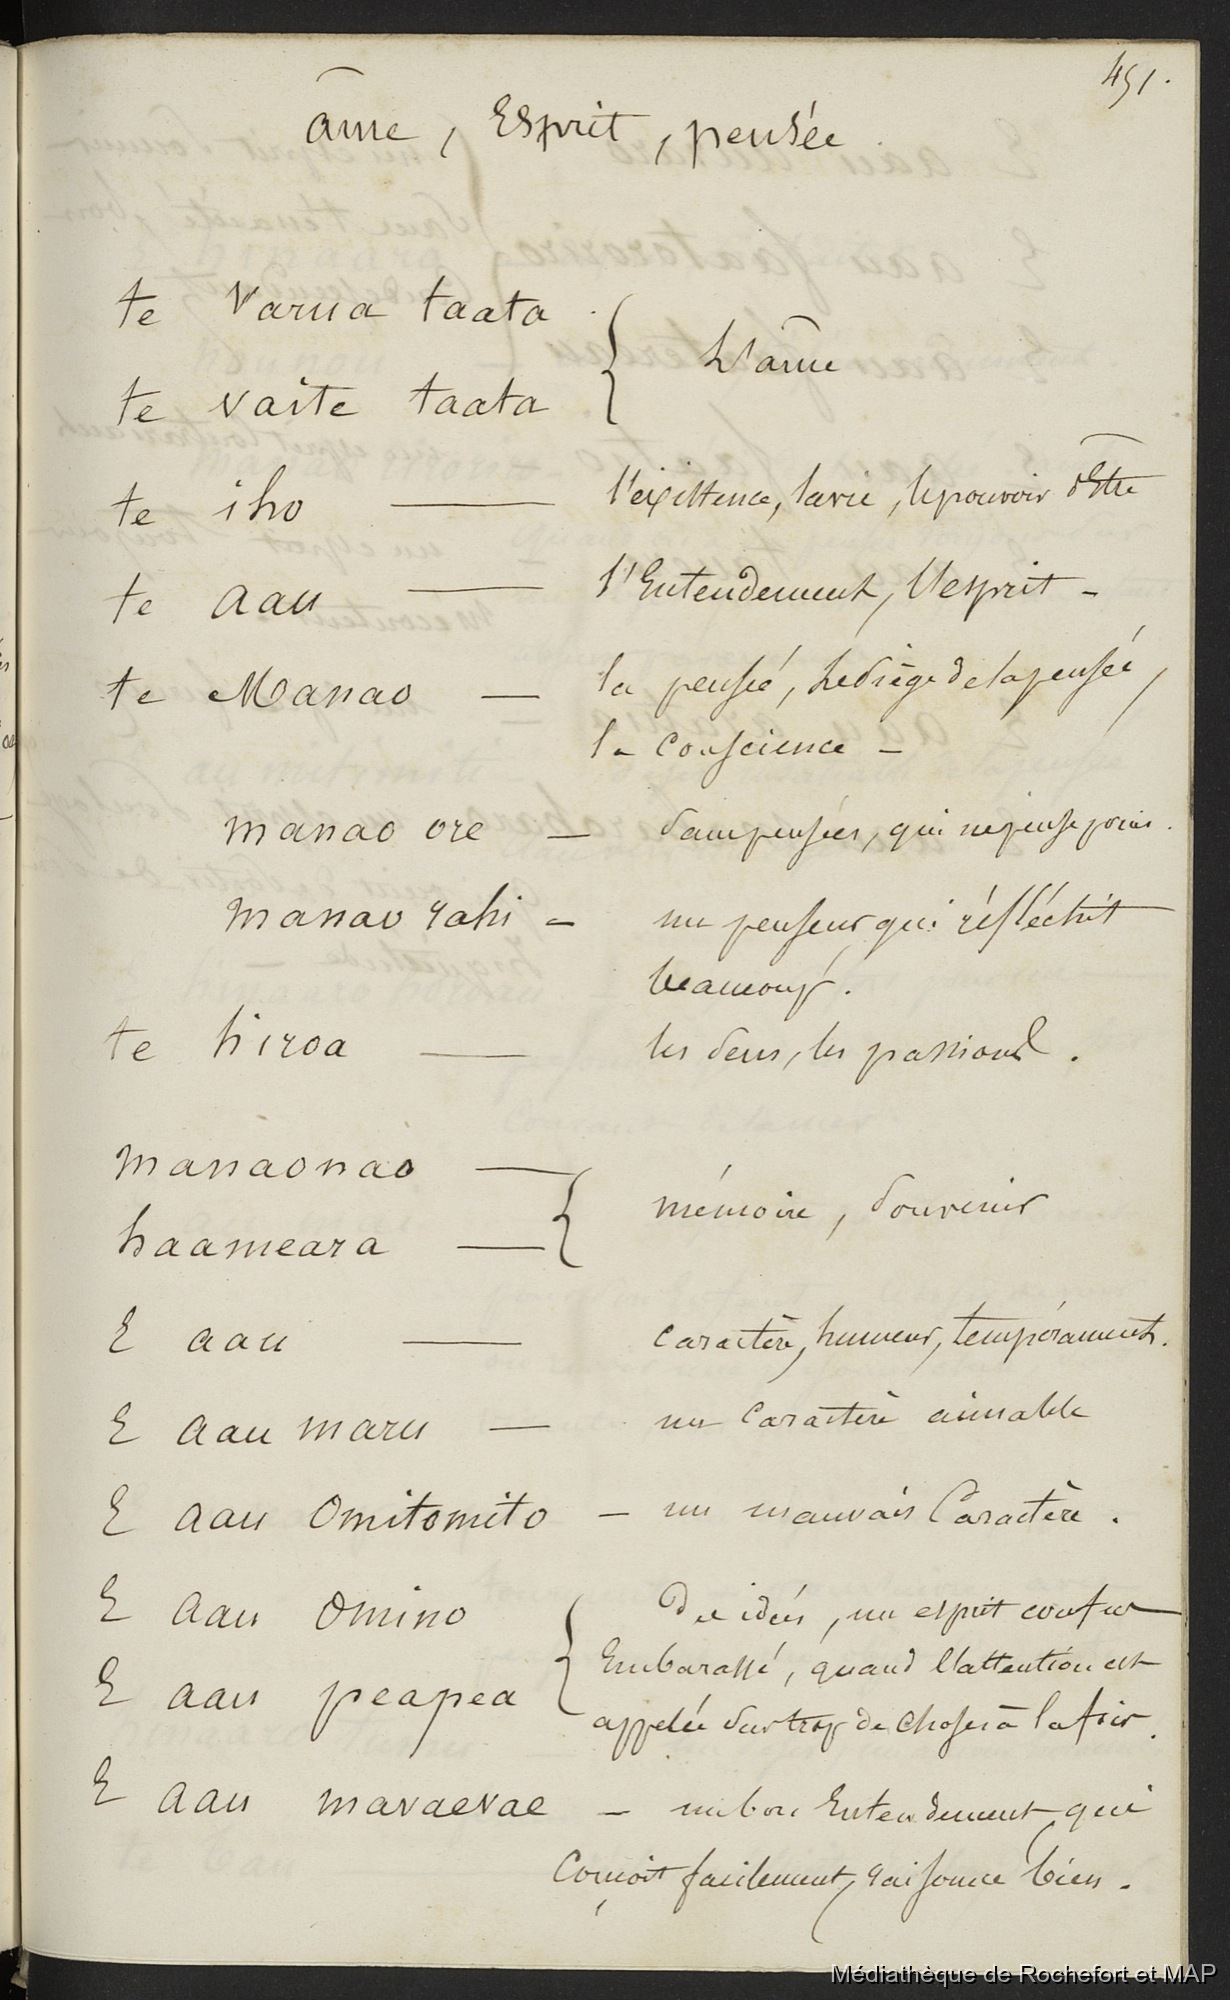 451.
âme, Esprit, pensée
te Varua taata
te vaite taata } L'âme
te iho — l'existence, la vie, le pouvoir d'Etre
te aau — l'Entendement, l'esprit -
te Manao — la pensée, le siège de la pensée,
la conscience -
manao ore — sans pensées, qui ne pense point.
manao rahi - un penseur, qui réfléchit
beaucoup.
te hiroa — les sens, les passions.
manaonao —
haameara — } mémoire, souvenir
E aau — caractère, humeur, tempérament.
E aau maru — un Caractère aimable
E aau Omitomito - un mauvais Caractère.
E aau Omino { Des idées, un esprit confus
E aau peapea Embarassé, quand l'attention est
appelée sur trop de choses à la fois.
E aau mavaevae - un bon Entendement, qui
Conçoit facilement, raisonne bien.
Médiathèque de Rochefort et MAP